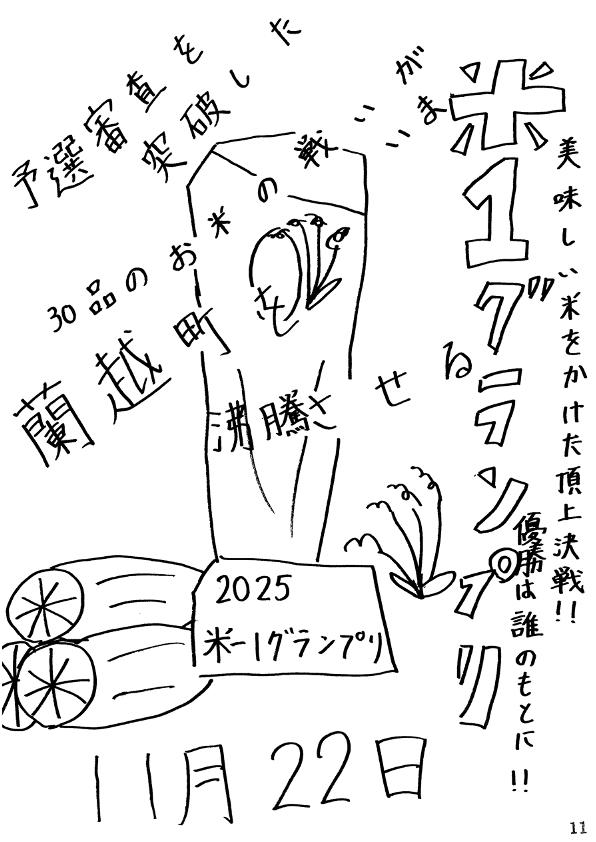 美味しい米をかけた頂上決戦!!
優勝は誰のもとに!!
米1グランプリ
予選審査を
突破した
30品のお米の戦いがいま
蘭越町を
沸騰させる
2025
米-1グランプリ
11月22日
11